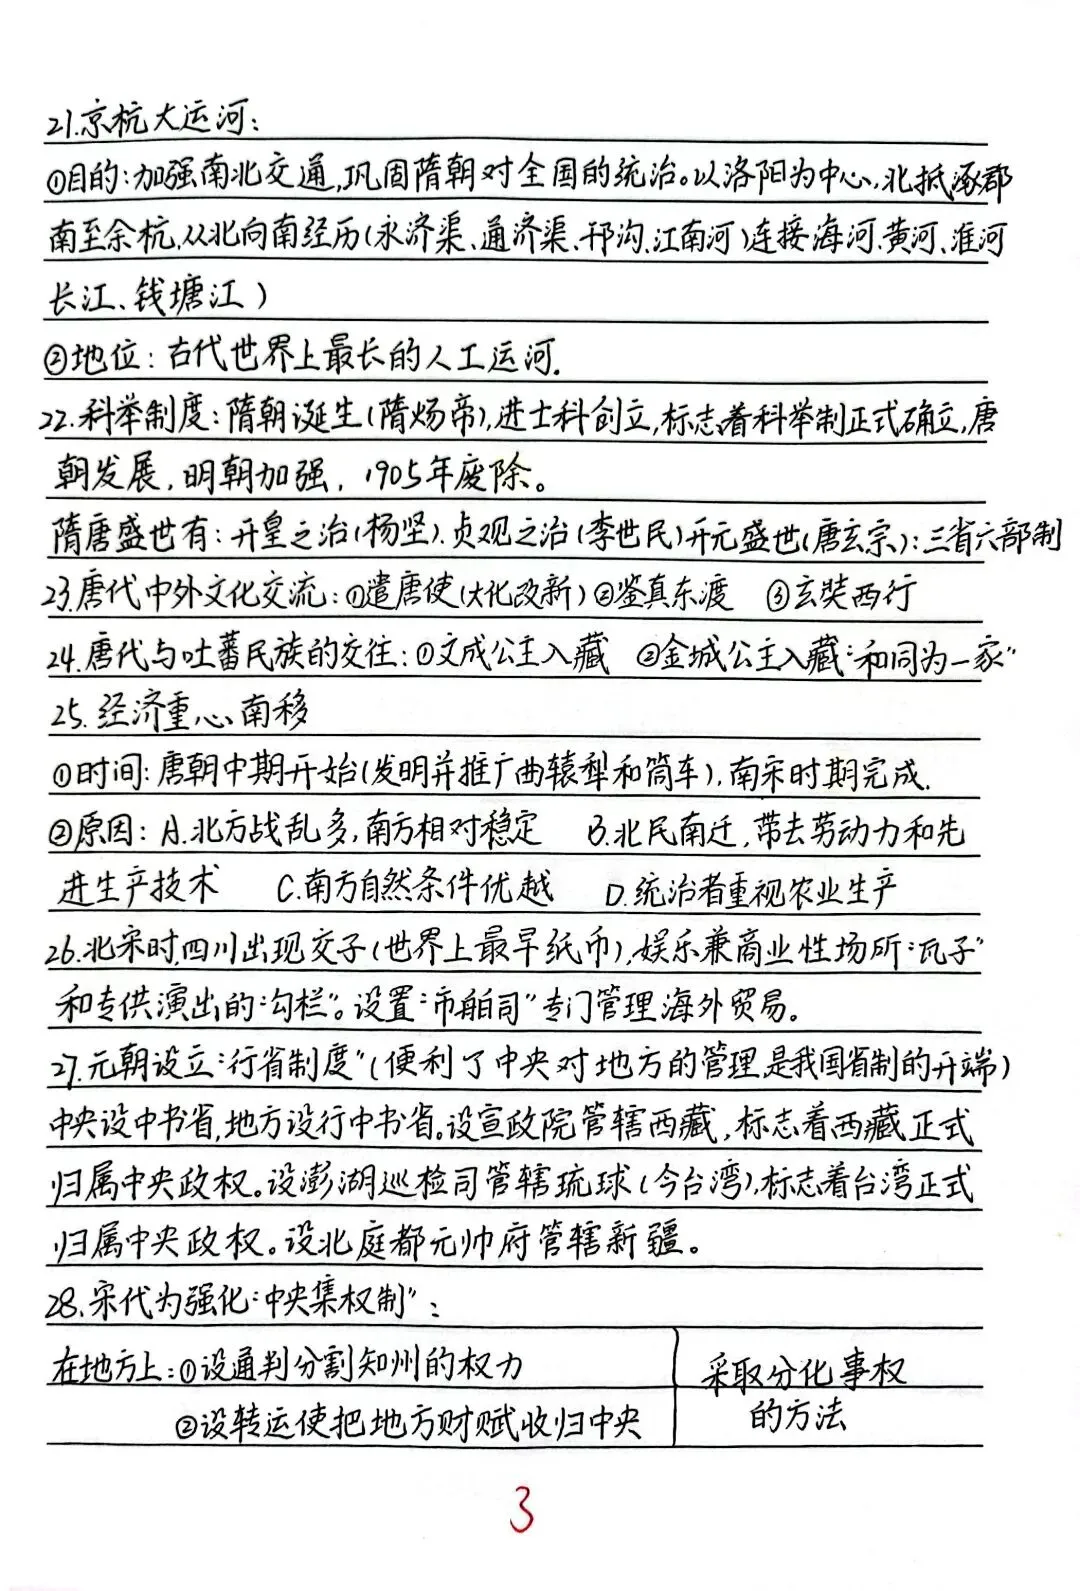 21.京杭大运河:
①目的:加强南北交通,巩固隋朝对全国的统治。以洛阳为中心,北抵涿郡
南至余杭,从北向南经历(永济渠、通济渠、邗沟、江南河)连接海河、黄河、淮河
长江、钱塘江)
②地位:古代世界上最长的人工运河.
22.科举制度:隋朝诞生(隋炀帝),进士科创立,标志着科举制正式确立,唐
朝发展,明朝加强,1905年废除。
隋唐盛世有:开皇之治(杨坚).贞观之治(李世民)开元盛世(唐玄宗):三省六部制
23.唐代中外文化交流:①遣唐使(大化改新)②鉴真东渡 ③玄奘西行
24.唐代与吐蕃民族的交往:①文成公主入藏 ②金城公主入藏“和同为一家”
25.经济重心南移
①时间:唐朝中期开始(发明并推广曲辕犁和筒车),南宋时期完成.
②原因:A.北方战乱多,南方相对稳定 B.北民南迁,带去劳动力和先
进生产技术 C.南方自然条件优越 D.统治者重视农业生产
26.北宋时,四川出现交子(世界上最早纸币),娱乐兼商业性场所“瓦子”
和专供演出的“勾栏”。设置“市舶司”专门管理海外贸易。
27.元朝设立“行省制度”(便利了中央对地方的管理,是我国省制的开端)
中央设中书省,地方设行中书省。设宣政院管辖西藏,标志着西藏正式
归属中央政权。设澎湖巡检司管辖琉球(今台湾),标志着台湾正式
归属中央政权。设北庭都元帅府管辖新疆。
28.宋代为强化“中央集权制”:
在地方上:①设通判分割知州的权力
②设转运使把地方财赋收归中央
采取分化事权
的方法
3